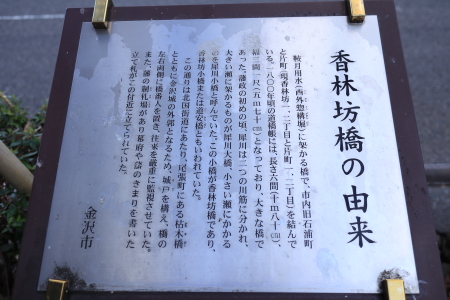 香林坊橋の由来
鞍月用水(西外惣構堀)に架かる橋で、市内旧石浦町
と片町(現香林坊一、二丁目と片町一、二丁目)を結んで
いる。一八〇〇年頃の道橋帳には、長さ六間(十m八十㎝)、
幅三間一尺(五m七十㎝)となっており、大きな橋で
あった。藩政の初めの頃、犀川は二つの川筋に分かれ、
大きい瀬に架かるものが犀川大橋、小さい瀬にかかる
のを犀川小橋と呼んでいた。この小橋が香林坊橋であり、
香林坊小橋または道安橋ともいわれていた。
この通りは北国街道にあたり、尾張町にある枯木橋
とともに金沢城の外郭となるため、城戸を構え、橋の
左右両側に橋番人を置き、往来を厳重に監視させていた。
また、藩の制札場があり幕府や藩のきまりを書いた
立て札がこの付近に立てられていた。
金沢市